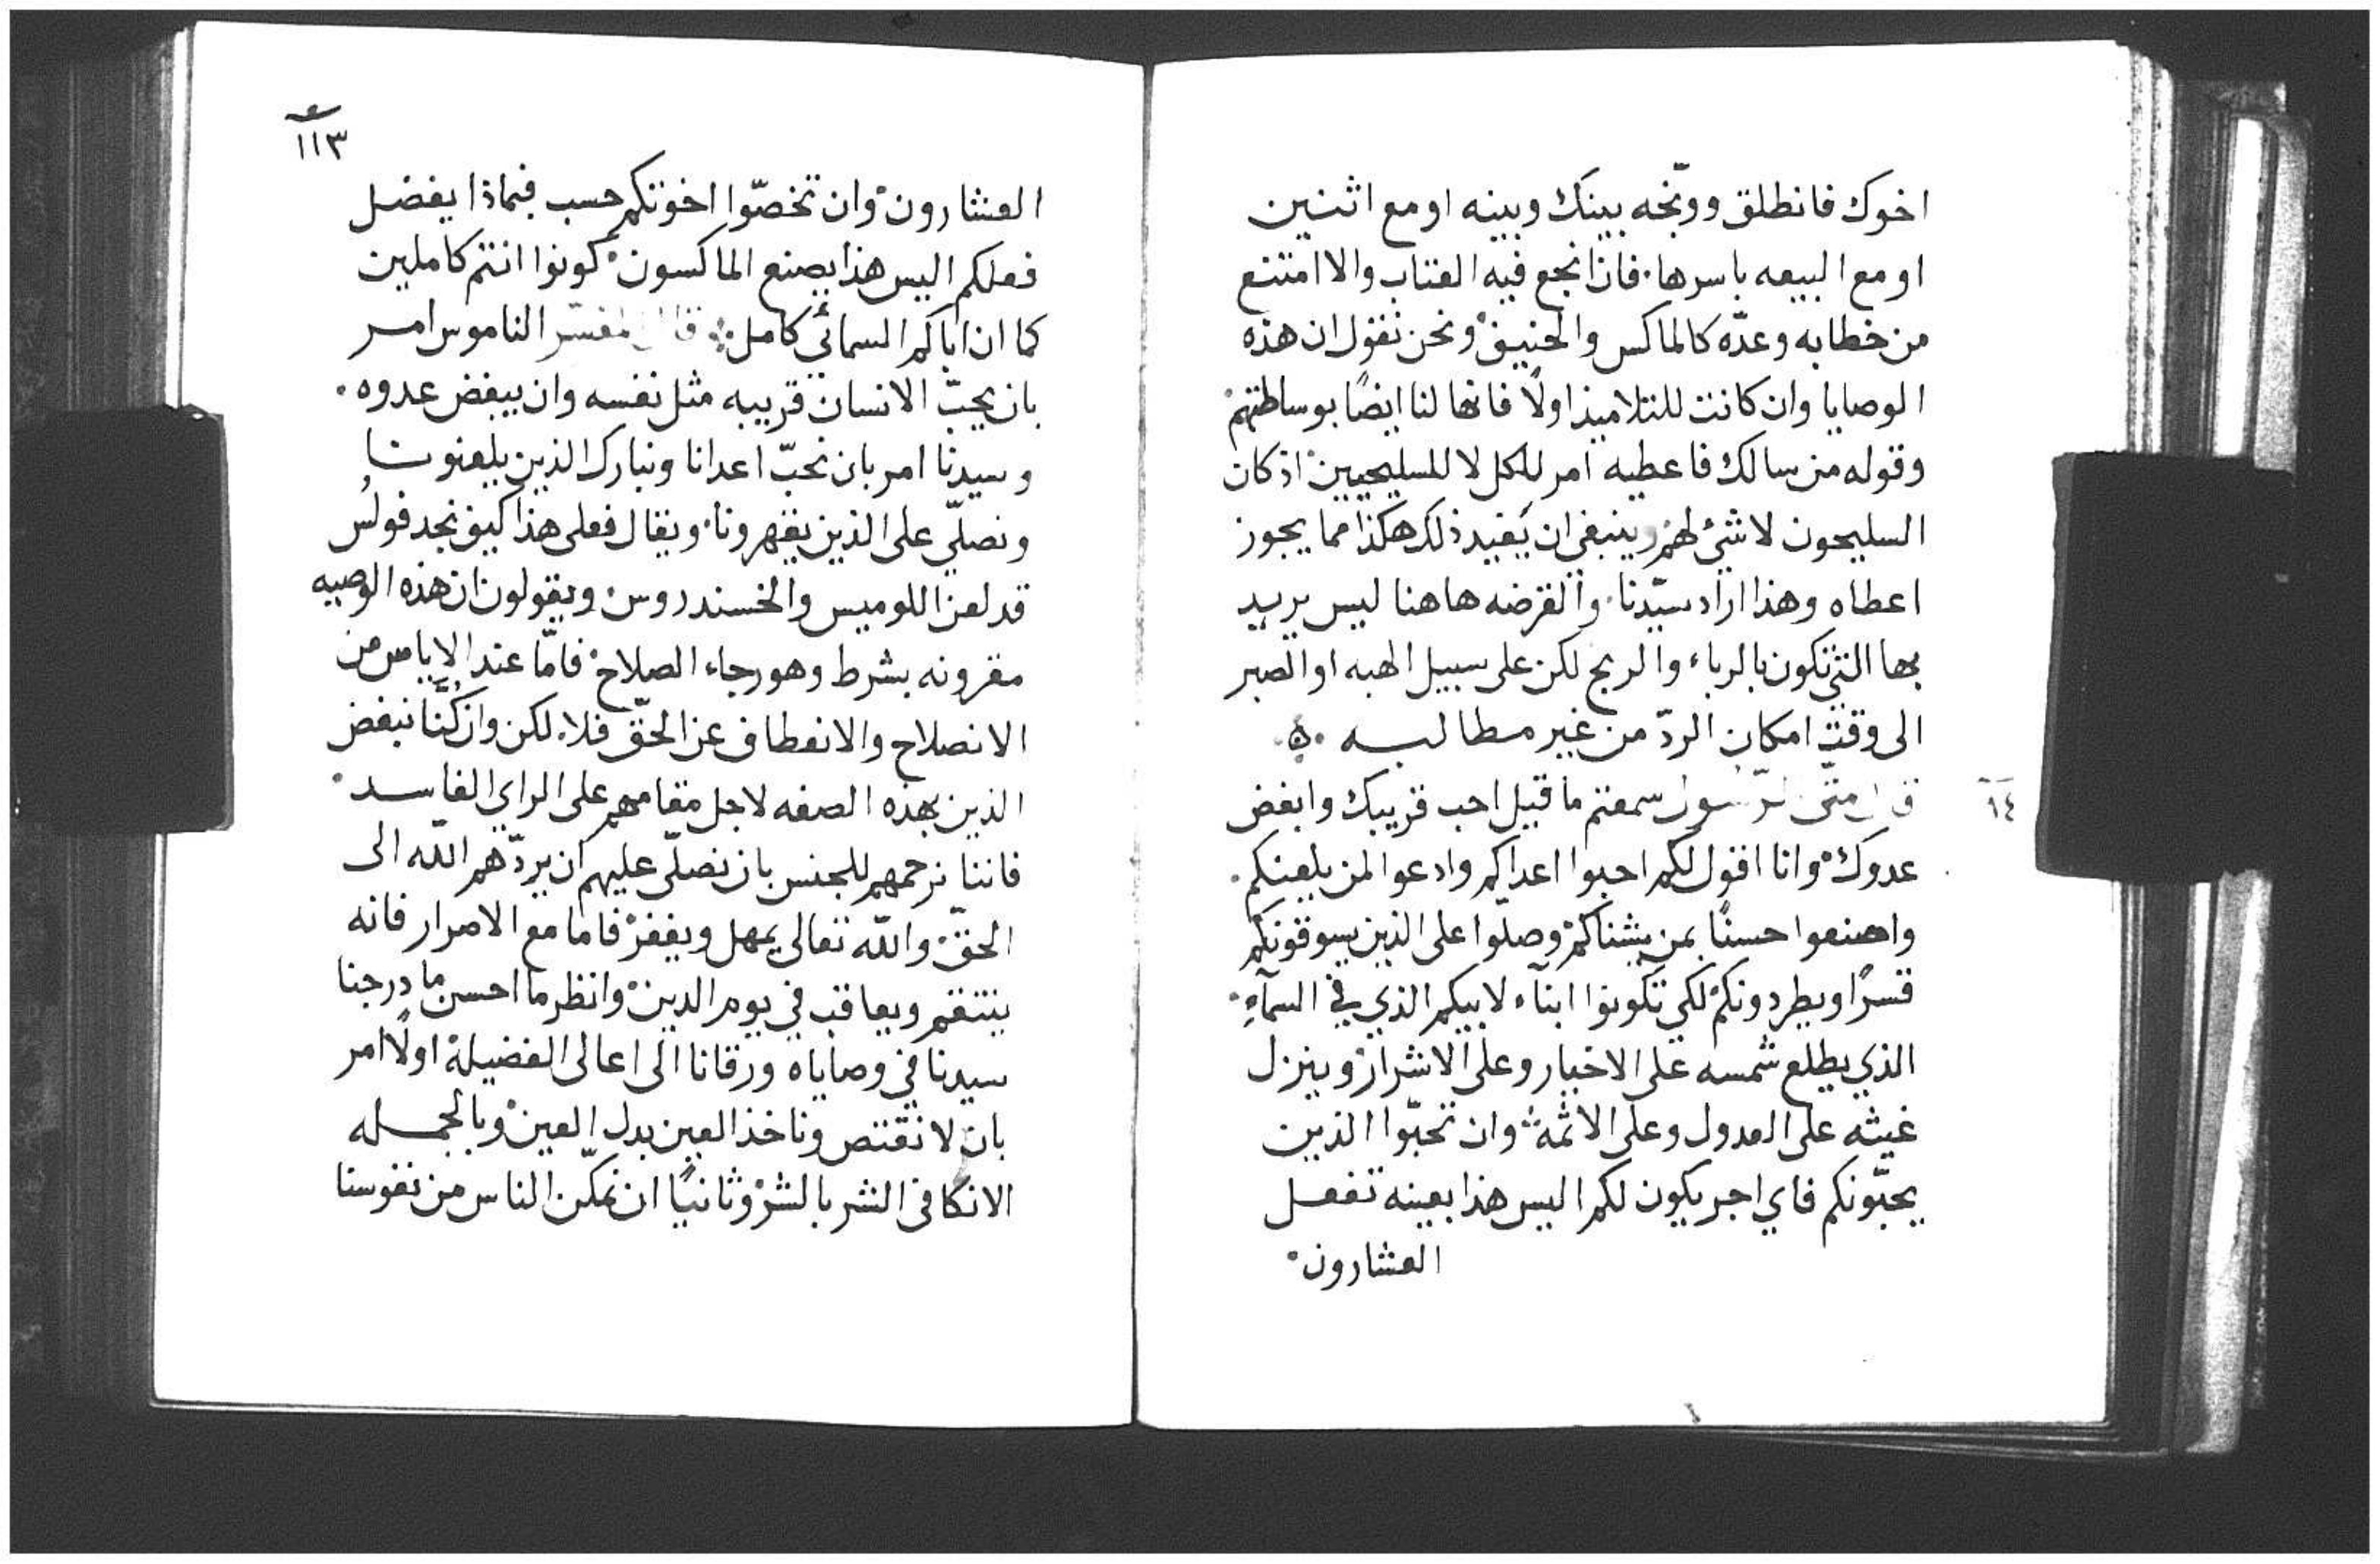 اخوك فانطلق ووبّخه بينك وبينه او مع اثنين
او مع البيعه باسرها. فان انجع فيه العتاب والا امتنع
من خطابه وعدّه كالماكس والحنيف ونحن نقول ان هذه
الوصايا وان كانت للتلاميذ اولًا فانها لنا ايضًا بوساطتهم
وقوله من سالك فاعطيه امر للكل لا للسليحيين اذ كان
السليحون لا شئ لهم وينبغي ان يقيد ذلك هكذا مما يجوز
اعطاه وهذا اراد سيّدنا. والقرضه هاهنا ليس يريد
بها التي تكون بالرباء والربح لكن على سبيل الهبه او الصبر
الى وقت امكان الردّ من غير مطالبه
١٤
قال متى الرسول سمعتم ما قيل احب قريبك وابغض
عدوك وانا اقول لكم احبوا اعداكم وادعوا لمن يلعنكم.
واصنعوا حسنًا بمن يشناكم وصلّوا على الذين يسوقونكم
قسرًا ويطردونكم لكي تكونوا ابنآء لابيكم الذي في السمآءِ
الذي يطلع شمسه على الاخيار وعلى الاشرار وينزل
غيثه على العدول وعلى الاثمه وان تحبّوا الذين
يحبّونكم فاي اجر يكون لكم اليس هذا بعينه تفعل
العشارون
١١٣
العشارون وان تخصّوا اخوتكم حسب فبماذا يفضل
فعلكم اليس هذا يصنع الماكسون كونوا انتم كاملين
كما ان اباكم السمائي كامل قال المفسّر الناموس امر
بان يحبّ الانسان قريبه مثل نفسه وان يبغض عدوه.
وسيدنا امر بان نحبّ اعدانا ونبارك الذين يلعنونا
ونصلّي على الذين يقهرونا. ويقال فعلى هذا كيف نجد فولُس
قد لعن اللوميس والخسندروس ويقولون ان هذه الوصيه
مقرونه بشرط وهو رجاء الصلاح فامّا عند الاياس من
الانصلاح والانعطاف عن الحقّ فلا. لكن وان كُنّا نبغض
الذين بهذه الصفه لاجل مقامهم على الراي الفاسد
فاننا نرحمهم للجنس بان نصلّى عليهم ان يردّهم اللّه الى
الحقّ واللّه تعالى يمهل ويغفر فاما مع الاصرار فانه
ينتقم ويعاقب في يوم الدين وانظر ما احسن ما درجنا
سيدنا في وصاياه ورقانا الى اعالى الفضيلة اولًا امر
بان لا نقتص وناخذ العين بدل العين وبالجمله
الا نكافى الشر بالشر وثانيًا ان نمكّن الناس من نفوسنا